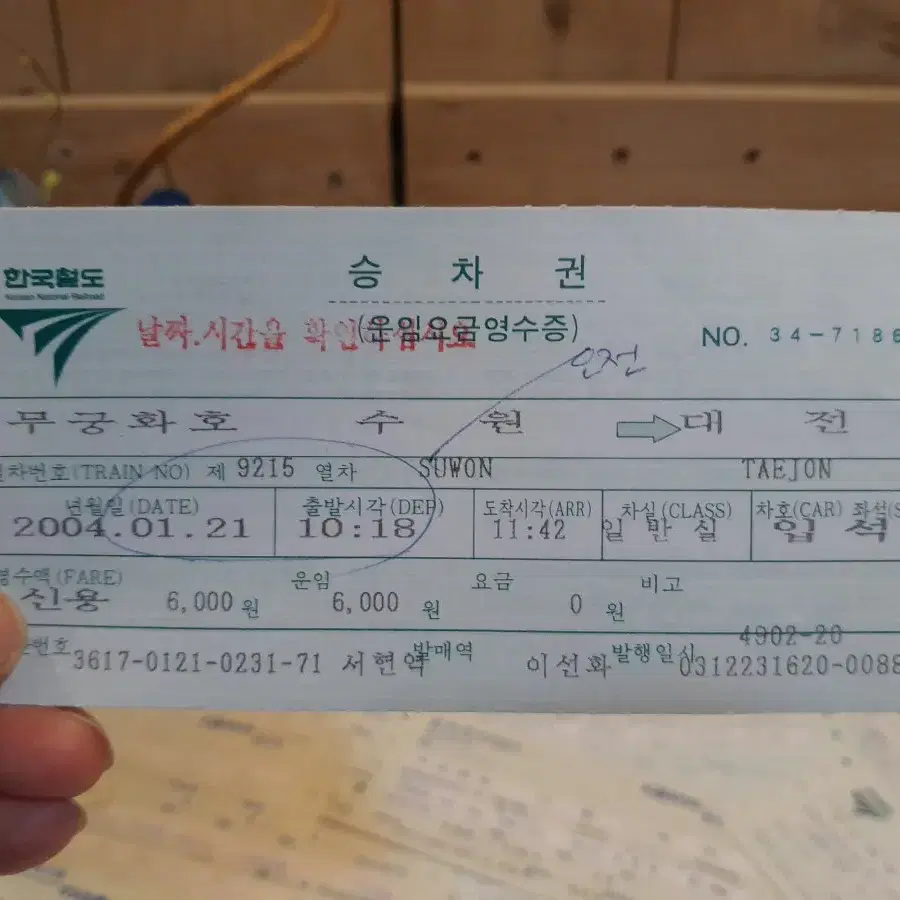 한국철도
Korean National Railroad
승 차 권
날짜.시간을 확인하십시오
(운임요금영수증)
NO. 34-7186
오전
무궁화호 수 원 ➡ 대 전
열차번호(TRAIN NO) 제 9215 열차 SUWON TAEJON
년월일(DATE) 출발시각(DEP) 도착시각(ARR) 차실(CLASS) 차호(CAR) 좌석(S
2004.01.21 10:18 11:42 일 반 실 입 석
영수액(FARE) 운임 요금 비고
신용 6,000 원 6,000 원 0 원
4902-20
번호 발매역 발행일시
3617-0121-0231-71 서현역 이선화 0312231620-0088